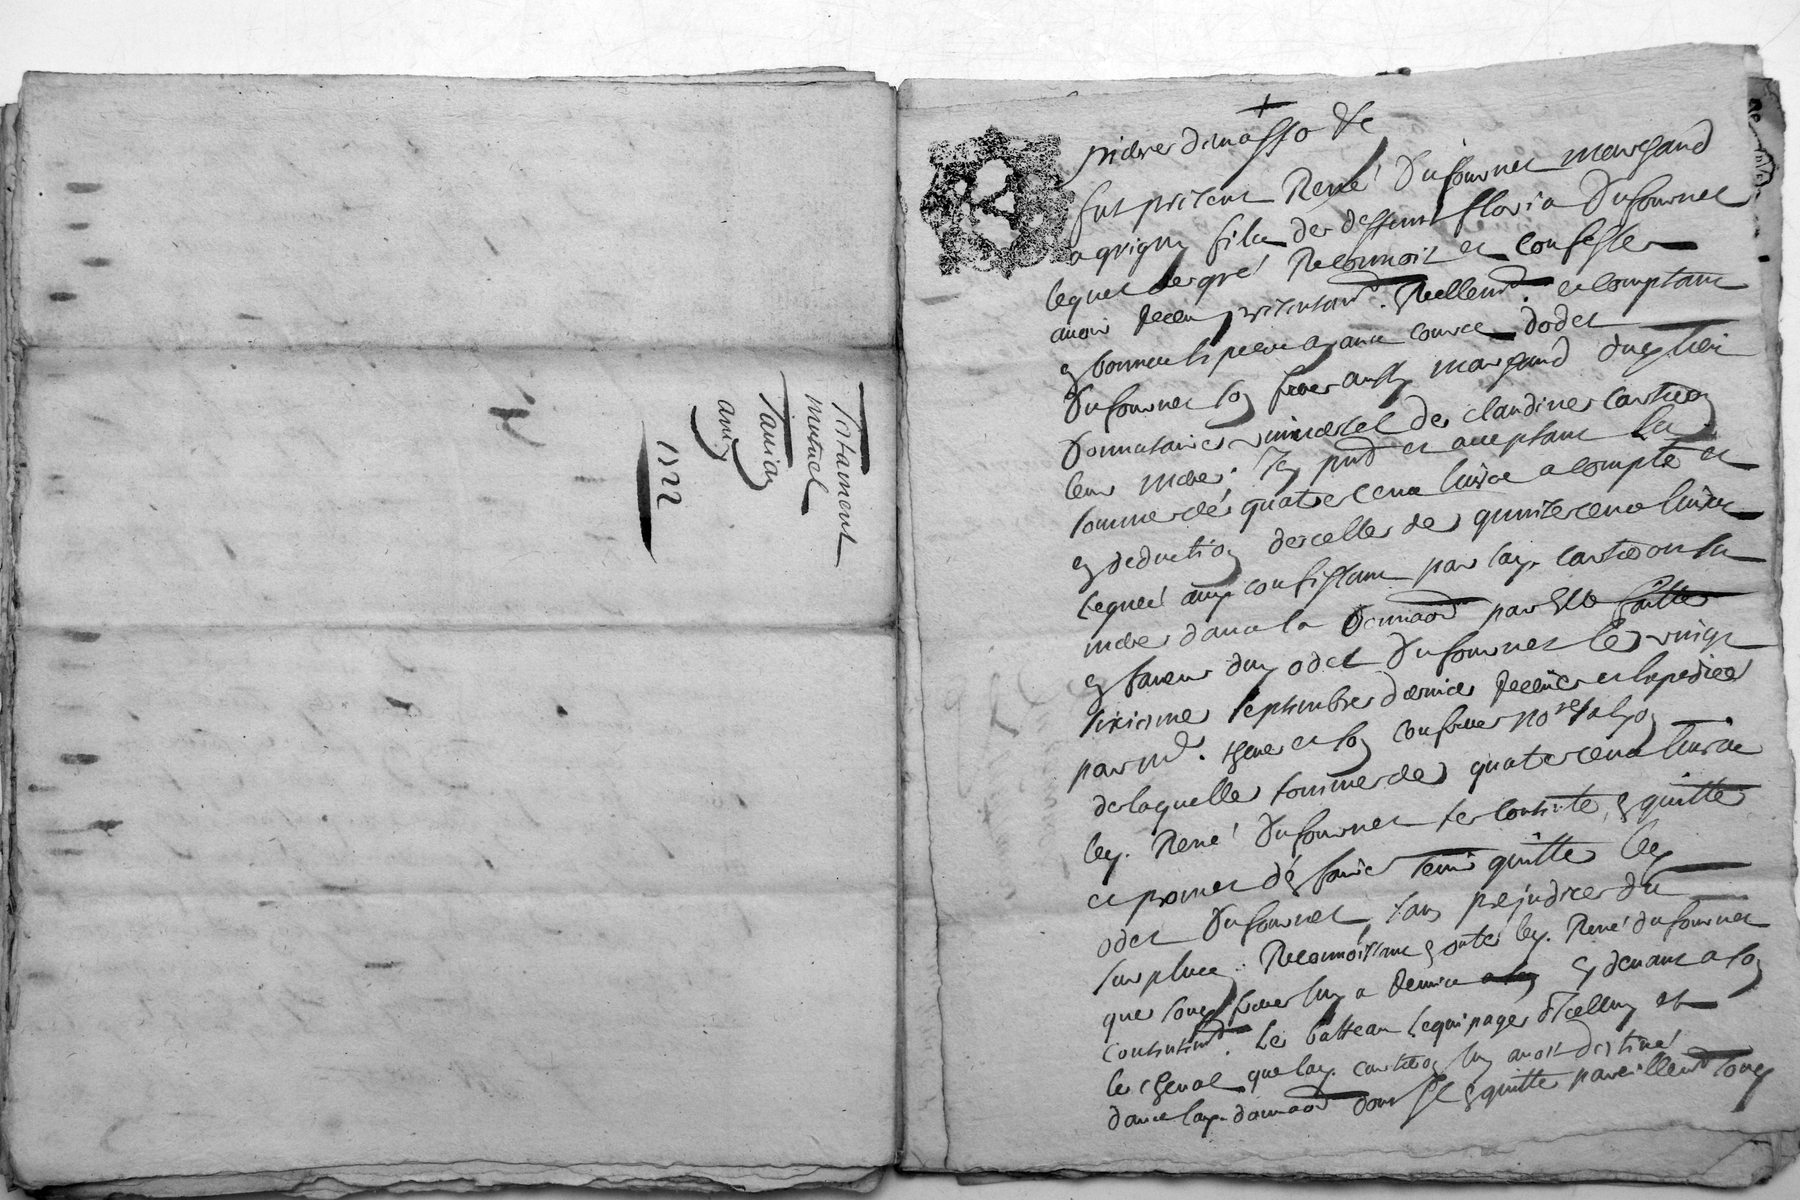 Testament
mutuel
1722
fut present René Dufournel margand
a grigny fils de deffunt Dufournel
lequel de gré Reconnoit et confesse
avoir Receu presentemt. Reellemt. et comptant
ayant cource dodet
Dufournel soy frere aussy margand dud. lieu
Donnataire universel de claudine
leur mere, Icy pnt et acceptant la
somme de quatre cens livres a compte et
en deduction de celle de quinze cens livres
par lad.
mere dans la donnaon par Elle faitte
en faveur dud. odet Dufournel le vingt
sixieme septembre dernier Receüe et expediée
par Me. et son confrere nores a lyon
de laquelle somme de quatre cens livres
led. René Dufournel se contente, en quitte
et promet den faire tenir quitte led.
odet Dufournel, sans prejudice du
surplus, Reconnoissant en outre led. René dufournel
que sond. frere luy a Remis cy devant a son
contentemt. Le batteau Equipage dicelluy et
le cheval que lad. luy avoit destiné
dans lad. donnaon dont Il quitte pareillemt. sond.